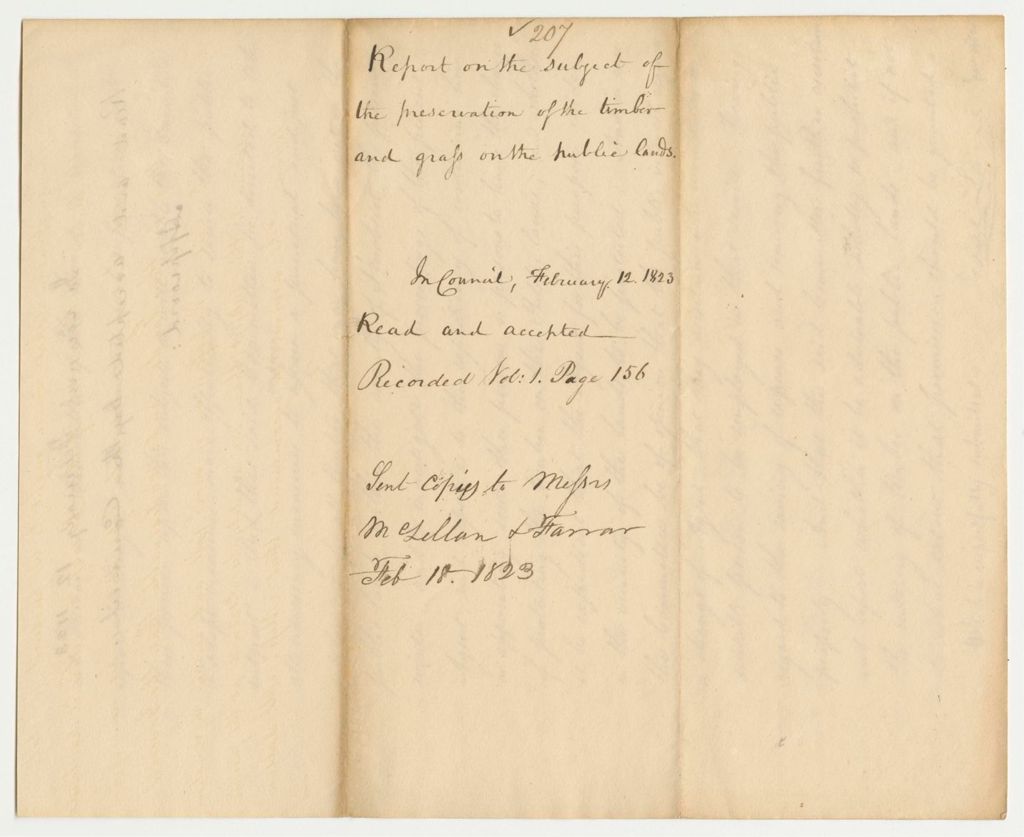 ✓ 207
Report on the subject of
the preservation of the timber
and grass on the public lands.
In Council, February 12. 1823
Read and accepted
Recorded Vol: 1. Page 156
Sent copies to Messrs
McLellan & Farrar
Feb 18. 1823